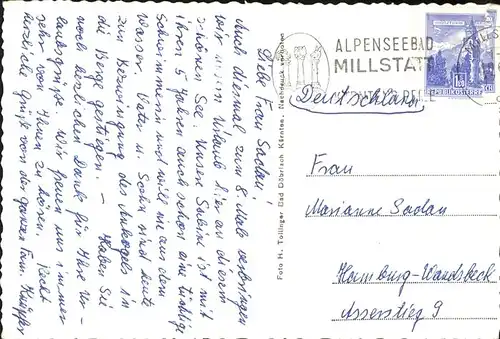 Liebe Frau Sadau!
Auch diesmal zum 8. Mal verbringen
wir unsern Urlaub hier an diesem
schönen See. Unsere Sabine ist mit
ihren 5 Jahren auch schon eine tüchtige
Schwimmerin und will nie aus dem
Wasser. Vater u. Sohn sind heute
zur Bezwingung des Ankogels in
die Berge gestiegen. – Haben Sie
noch herzlichen Dank für Ihre Ur-
laubsgrüße. Wir freuen uns immer
sehr von Ihnen zu hören. Recht
herzliche Grüße von der ganzen Fam.
Foto H. Tollinger Bad Döbriach Kärnten, Nachdruck verboten
ALPENSEEBAD
MILLSTATT
PERLE
REPUBLIK ÖSTERREICH
Deutschland
Frau
Marianne Sadau
Hamburg-Wandsbeck
Asserstieg 9